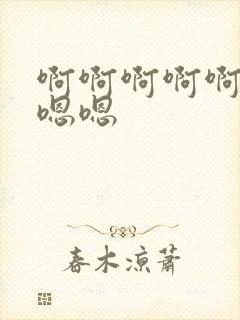 啊啊啊啊啊
嗯嗯
春木凉萧